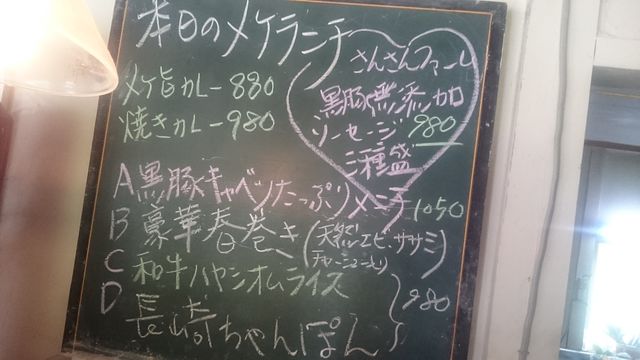 本日のメケランチ
メケ旨カレー880
焼きカレー980
さんさんファーム
黒豚無添加
ソーセージ 980
三種盛
A 黒豚キャベツたっぷりメンチ 1050
B 豪華春巻き(天然エビ、ササミ
C 和牛ハヤシオムライス
D 長崎ちゃんぽん
980